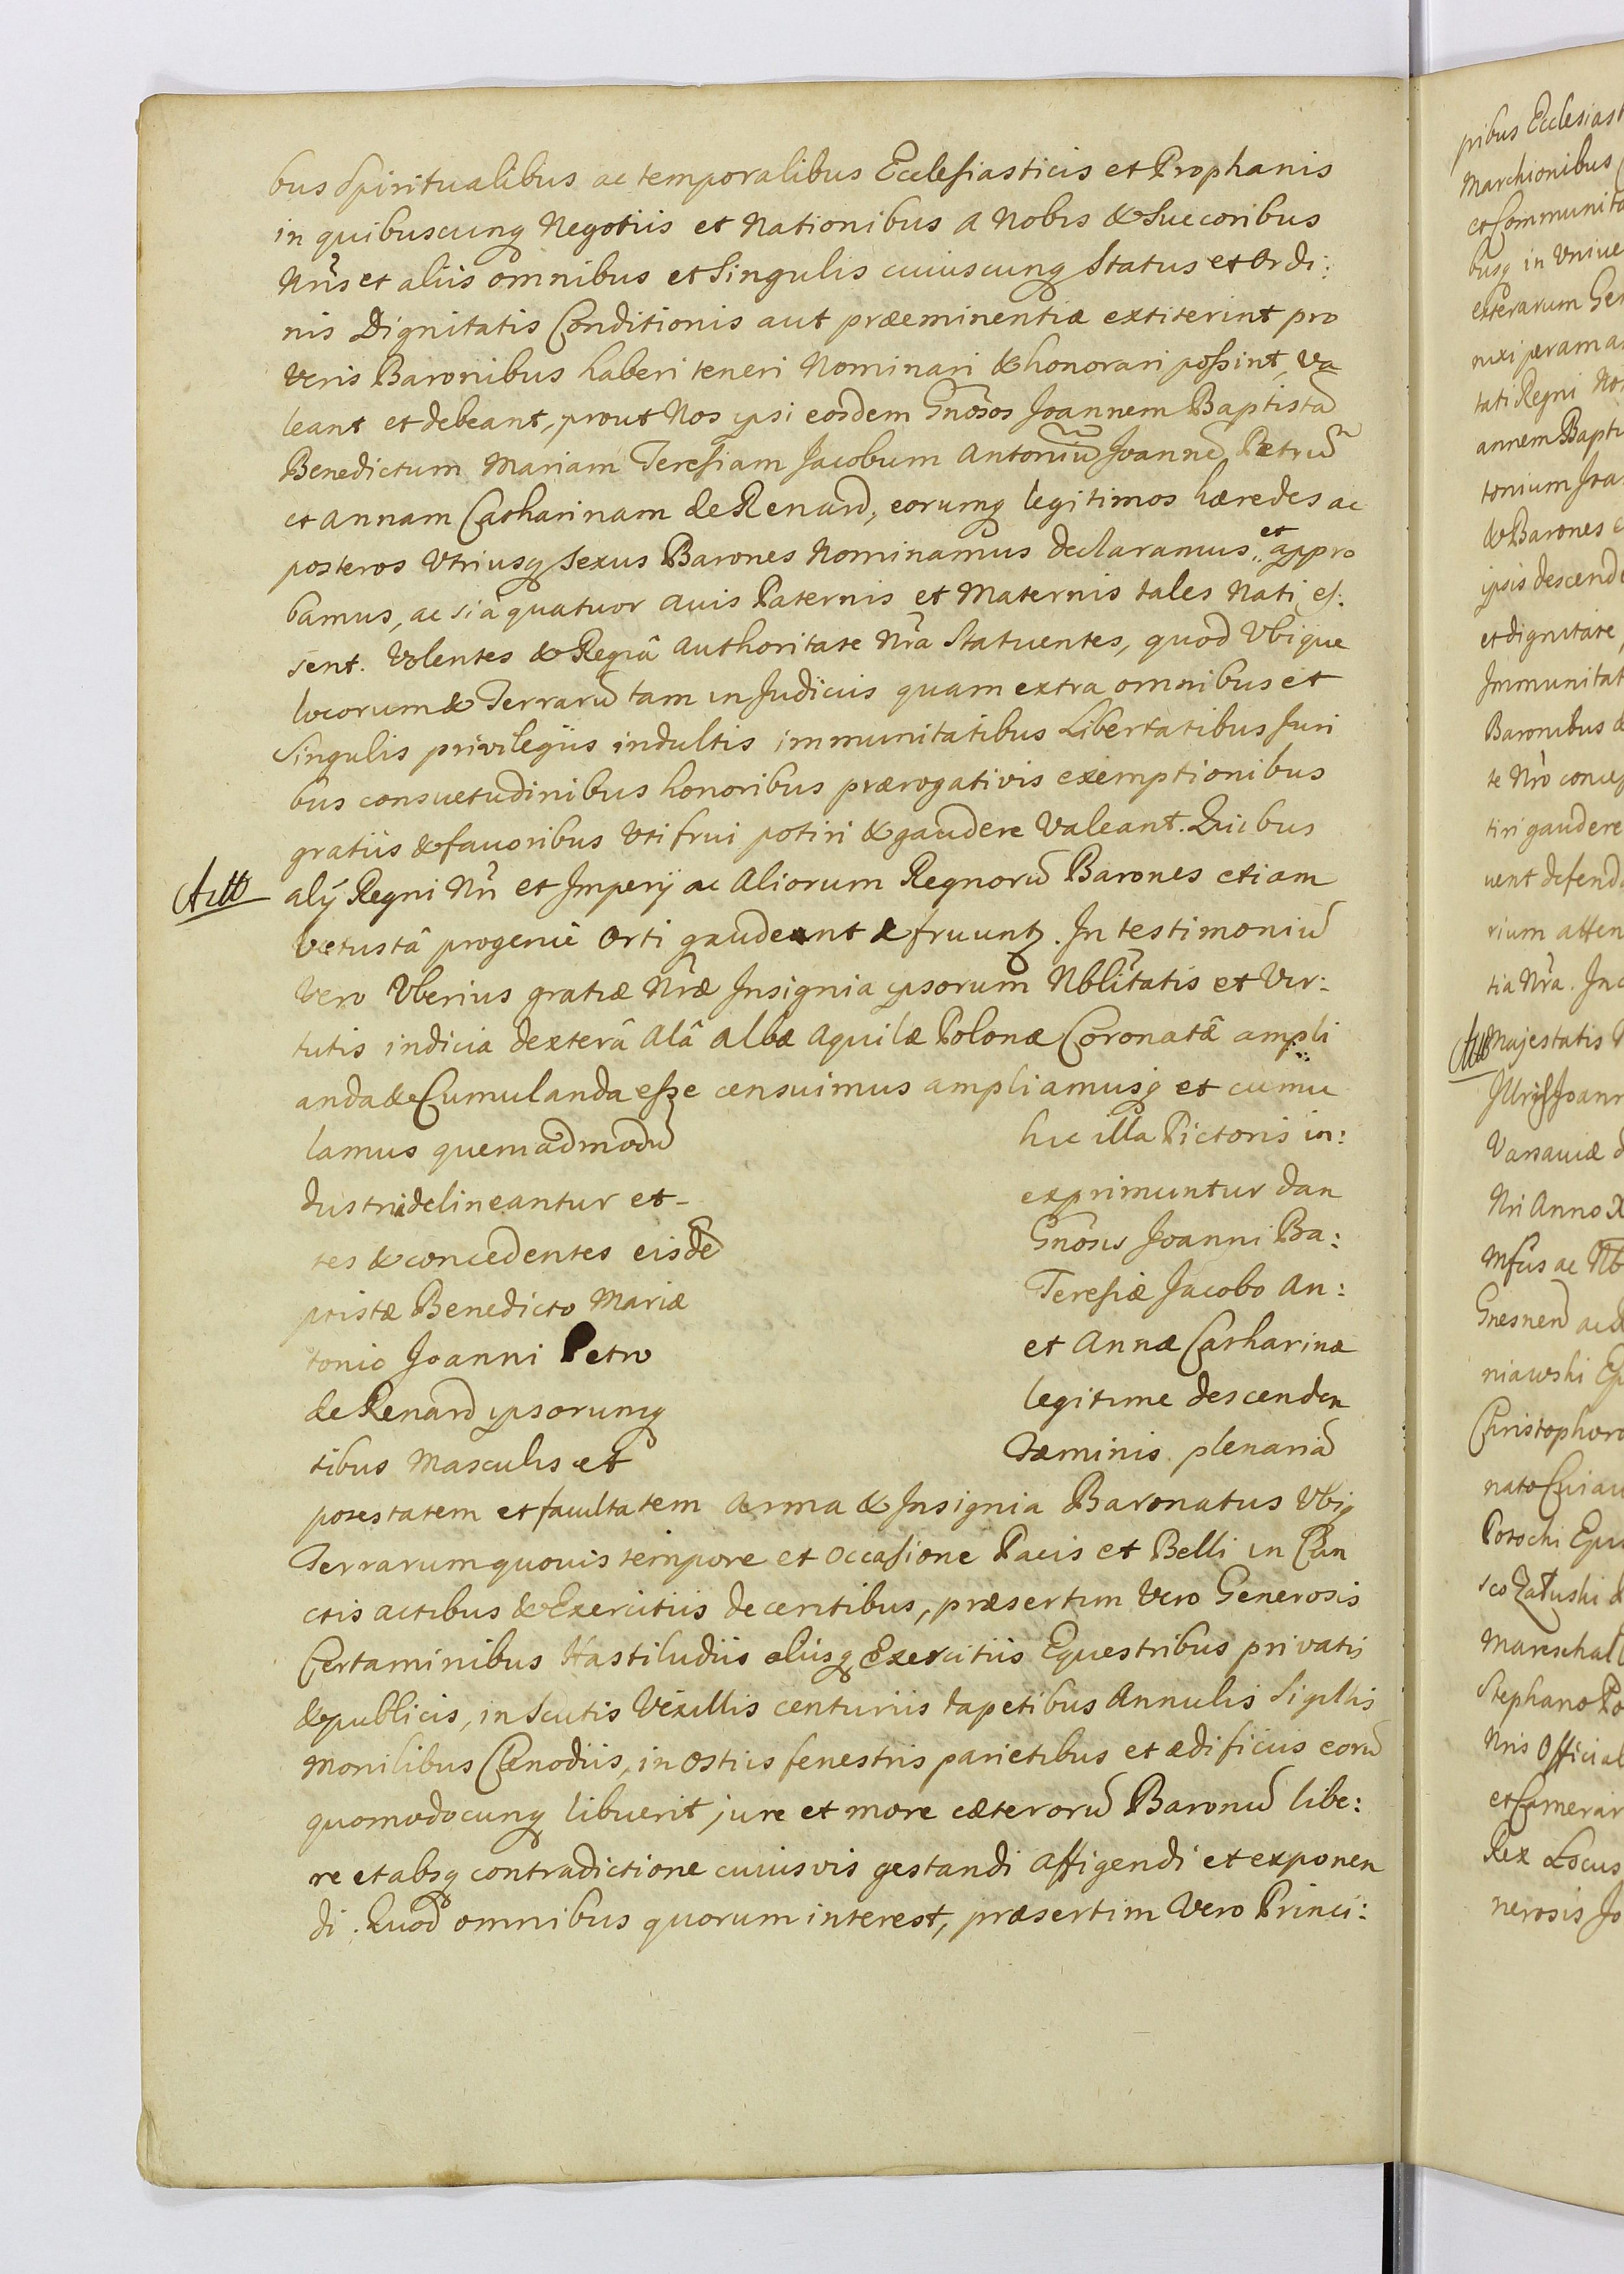 bus Spiritualibus ac temporalibus Ecclesiasticis et Prophanis
in quibuscunq Negotiis et Nationibus a Nobis & Succoribus
Nris et aliis omnibus et Singulis cuiuscunq Status et Ordi:
nis Dignitatis Conditionis aut præeminentiæ extiterint pro
Veris Baronibus haberi teneri Nominari & honorari possint, Va
leant et debeant, prout Nos ipsi eosdem Gnosos Joannem Baptistã
Benedictum Mariam Teresiam Jacobum Antoniũ Joannẽ Petrũ
et Annam Catharinam de Renard, eorumq legitimos hæredes ac
posteros Utriusq Sexus Barones Nominamus declaramus et appro
bamus, ac si â quatuor avis Paternis et Maternis tales Nati es:
sent. Volentes & Regiâ Authoritate Nrâ Statuentes, quod Ubique
locorum & Terrarũ tam in Judiciis quam extra omnibus et
Singulis privilegiis indultis immunitatibus Libertatibus Juri
bus consuetudinibus honoribus prærogativis exemptionibus
gratiis & favoribus Uti frui potiri & gaudere Valeant. Quibus
alÿ Regni Nri et Imperÿ ac Aliorum Regnorũ Barones etiam
Vetustâ progenie Orti gaudent & fruuntz. In testimoniũ
Vero Uberius gratiæ Nræ Insignia ipsorum Nblitatis et Vir:
tutis indicia dexterâ Alâ albæ Aquilæ Polonæ Coronatâ ampli
anda & Cumulanda esse censuimus ampliamusq et cumu
lamus quemadmodũ hic illa Pictoris in:
dustria delineantur et- exprimuntur dan
tes & concedentes eisdẽ Gnosis Joanni Ba:
ptistæ Benedicto Mariæ Teresiæ Jacobo An:
tonio Joanni Petro et Annæ Catharinæ
de Renard ipsorumq legitime descenden
tibus Masculis et Fæminis plenariã
potestatem et facultatem Arma & Insignia Baronatus Ubiq
Terrarum quovis tempore et Occasione Pacis et Belli in Cun
ctis actibus & Exercitiis decentibus, præsertim Vero Generosis
Certaminibus Hastiludiis aliisq Exercitiis Equestribus privatis
& publicis, in Scutis Vexillis centuriis tapetibus Annulis Sigillis
Monilibus Cenodiis, in Ostiis fenestris parietibus et ædificiis eorũ
quomodocunq libuerit jure et more cæterorũ Baronũ libe:
re et absq contradictione cuiusvis gestandi Affigendi et exponen
di. Quod omnibus quorum interest, præsertim Vero Princi:
pribus Ecclesiast
Marchionibus
et Communita
busq in Unive
exterarum Gen
tati Regni No
annem Bapti
tonium Joa
& Barones
ipsis descend
et dignitate
Immunitat
Baronibus &
te Nro conces
tiri gaudere
uent defend
rium atten
tia Nra. In
Majestatis
Joann
Varsaviæ d
Nri Anno X
Gnesnen
niawski Ep
Christophoro
nato Cuiau
Potocki Epi
sco Załuski
Mareschal
Stephano Po
Nris Official
et Camerar
Rex Locus
nerosis Jo